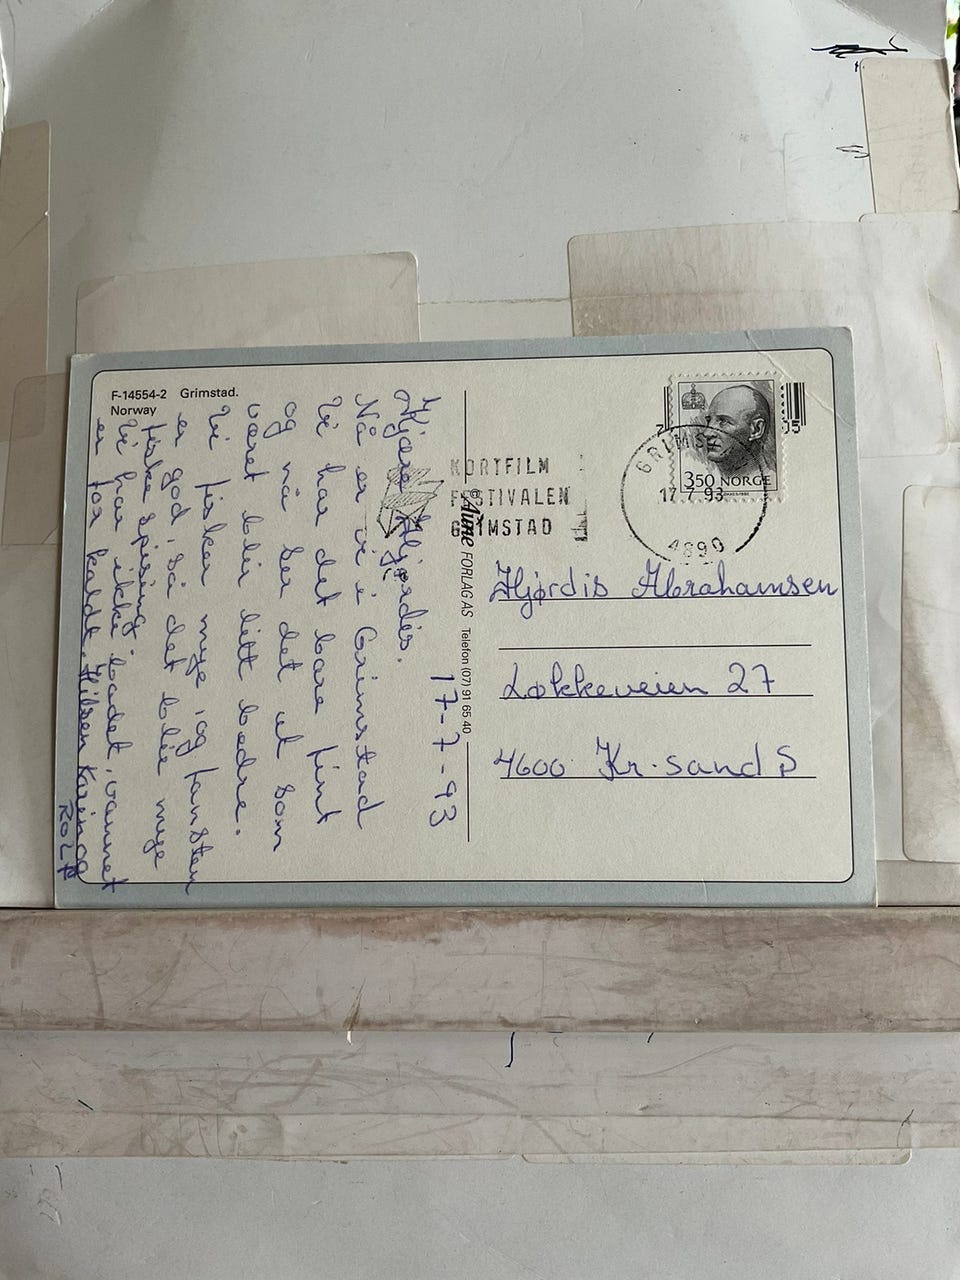 F-14554-2 Grimstad.
Norway
17-7-93
Kjære Hjørdis.
Nå er vi i Grimstad
Vi har det bare fint
og nå ser det ut som
været blir litt bedre.
Vi fisker mye, og fangsten
er god, så det blir mye
fiske spising.
Vi har ikke badet, vannet
er for kaldt. Hilsen Karin og
ROLF
KORTFILM
FESTIVALEN
GRIMSTAD
Aune FORLAG AS Telefon (07) 91 65 40
350 NORGE
GRIMSTAD
17.7.93
4890
Hjørdis Abrahamsen
Løkkeveien 27
4600 Kr.sand S